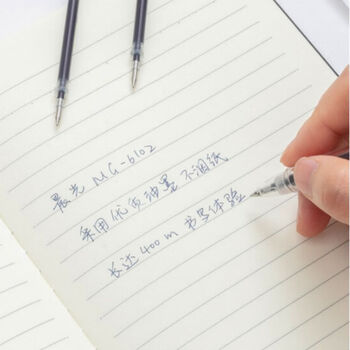 晨光 MG-6102
采用优质油墨 不洇纸
长达400m 书写体验